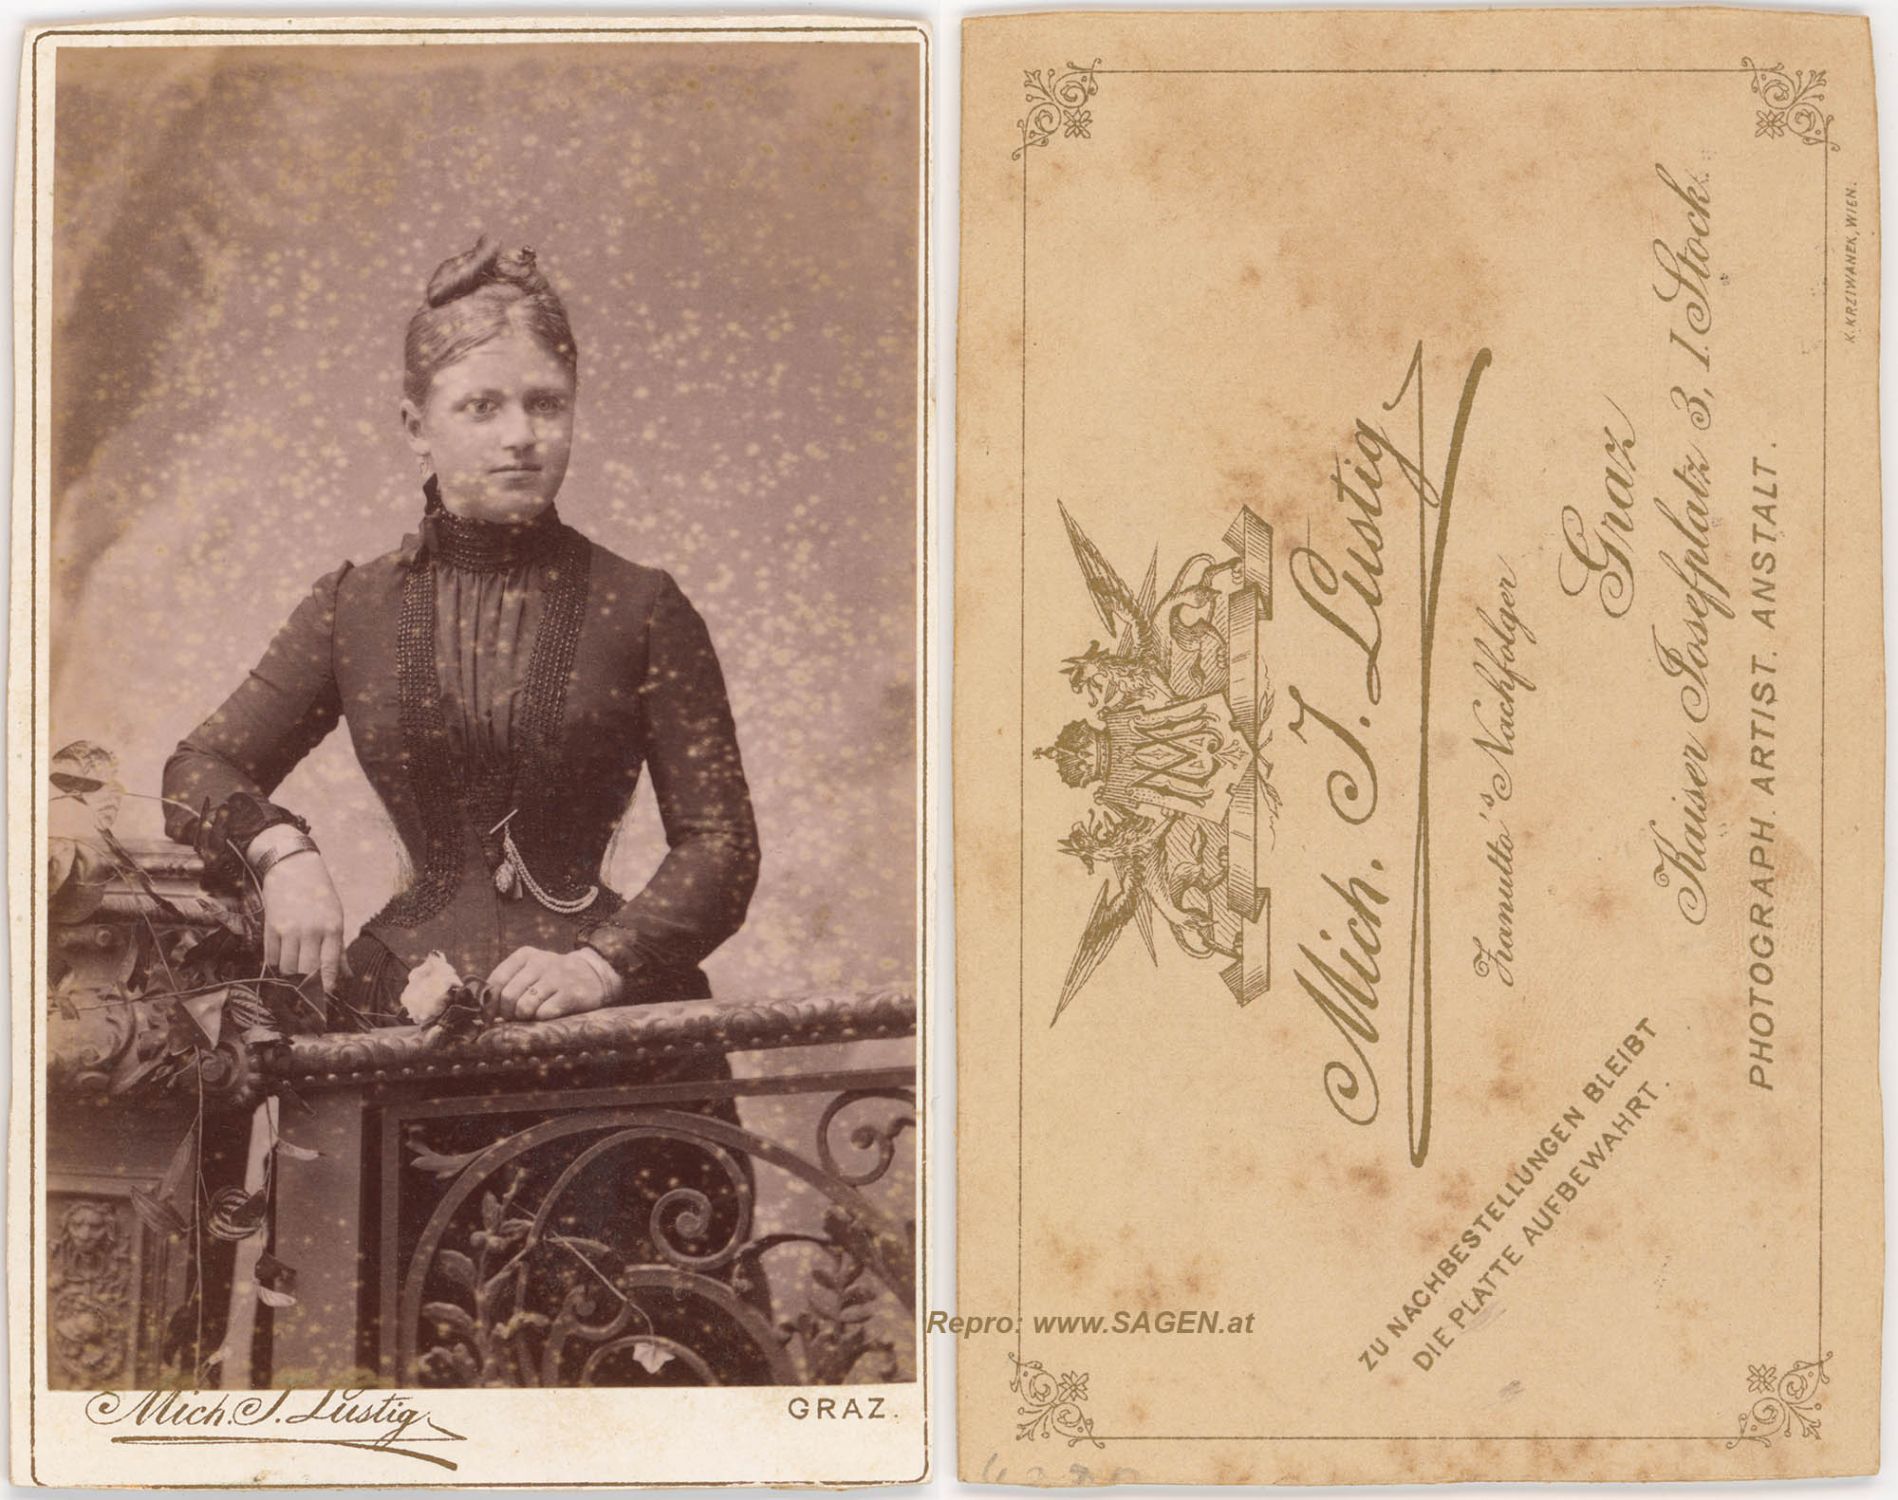 Mich. J. Lustig.
GRAZ.
Mich. J. Lustig
Zanutto's Nachfolger
Graz
Kaiser Josefplatz 3, I. Stock.
PHOTOGRAPH. ARTIST. ANSTALT.
ZU NACHBESTELLUNGEN BLEIBT
DIE PLATTE AUFBEWAHRT.
K. KRZIWANEK, WIEN.
Repro: www.SAGEN.at